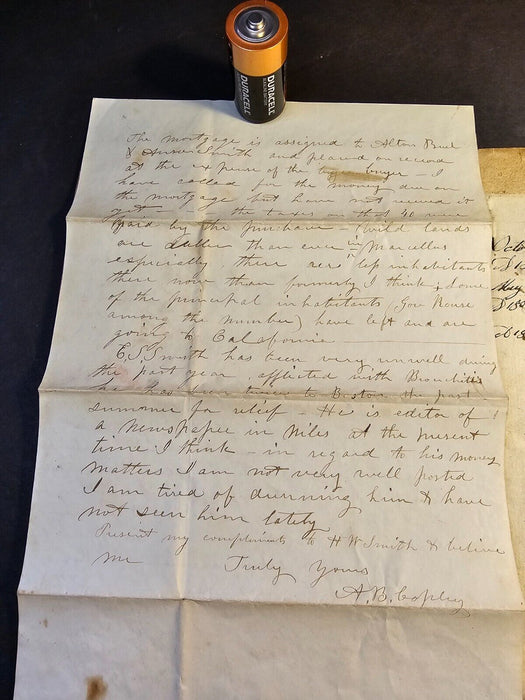 DURACELL
DURACELL
The mortgage is assigned to Alton Buel
& Smith and placed on record
at the expense of the buyer - I
have called for the money due on
the mortgage but have not received it
- the taxes on that 40 were
Paid by the purchaser - (wild lands
are duller than ever in Marcellus
especially, there are less inhabitants
there now than formerly I think, some
of the principal inhabitants (Gov Rouse
among the number) have left and are
going to California
E, S, Smith has been very unwell during
the past year - afflicted with Bronchitis
he has been twice to Boston the past
summer for relief - He is editor of
a newspaper in Niles at the present
time I think - in regard to his money
matters I am not very well posted
I am tired of dunning him & have
not seen him lately
Present my compliments to H W Smith & believe
me Truly Yours
A. B. Copley